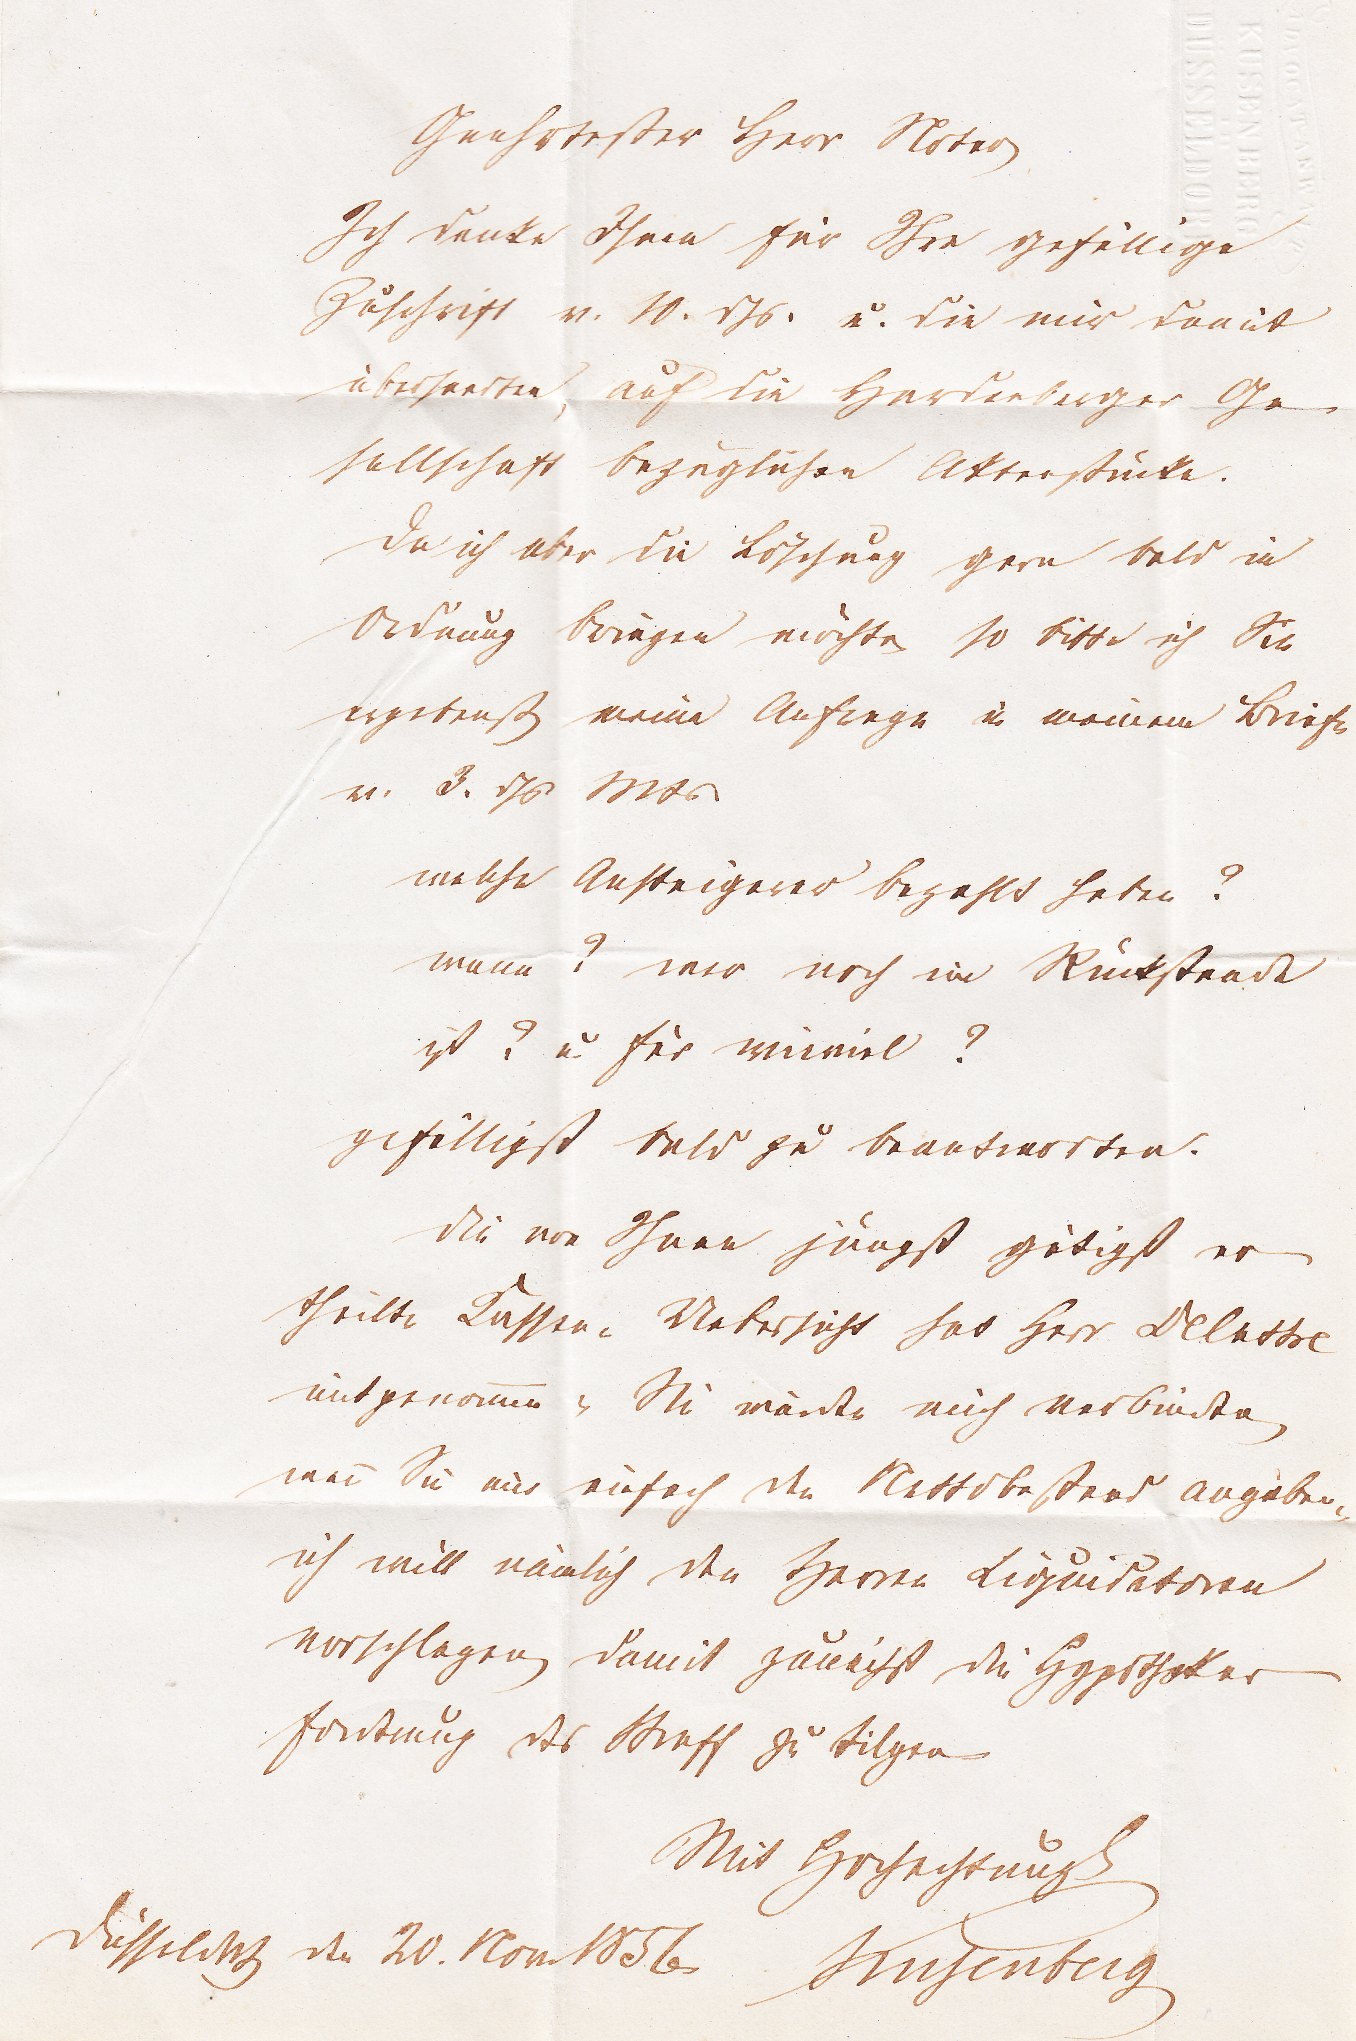 ADVOCAT ANWALT
KUSENBERG
IN
DÜSSELDORF
Geehrtester Herr Notar
Ich danke Ihnen für Ihre gefällige
Zuschrift v. 10. ds. u. die mir damit
übersandten, auf die Hardenberger Ge-
sellschaft bezüglichen Aktenstücke.
Da ich aber die Löschung gern bald in
Ordnung bringen möchte so bitte ich Sie
ergebenst meine Anfrage in meinem Briefe
v. 3. ds Mts
welche Ansteigerer bezahlt haben?
wann? wer noch im Rückstande
ist? u für wieviel?
gefälligst bald zu beantworten.
Die von Ihnen jüngst gütigst er
theilte Cassen-Uebersicht hat Herr Delattre
mitgenommen, Sie würden mich verbinden,
wenn Sie mir einfach den Nettobestand angäben,
ich will nämlich den Herren Liquidatoren
vorschlagen damit zunächst die Hypothekar
forderung des zu tilgen
Mit Hochachtung
Düsseldorf den 20. Nov 1856 Kusenberg